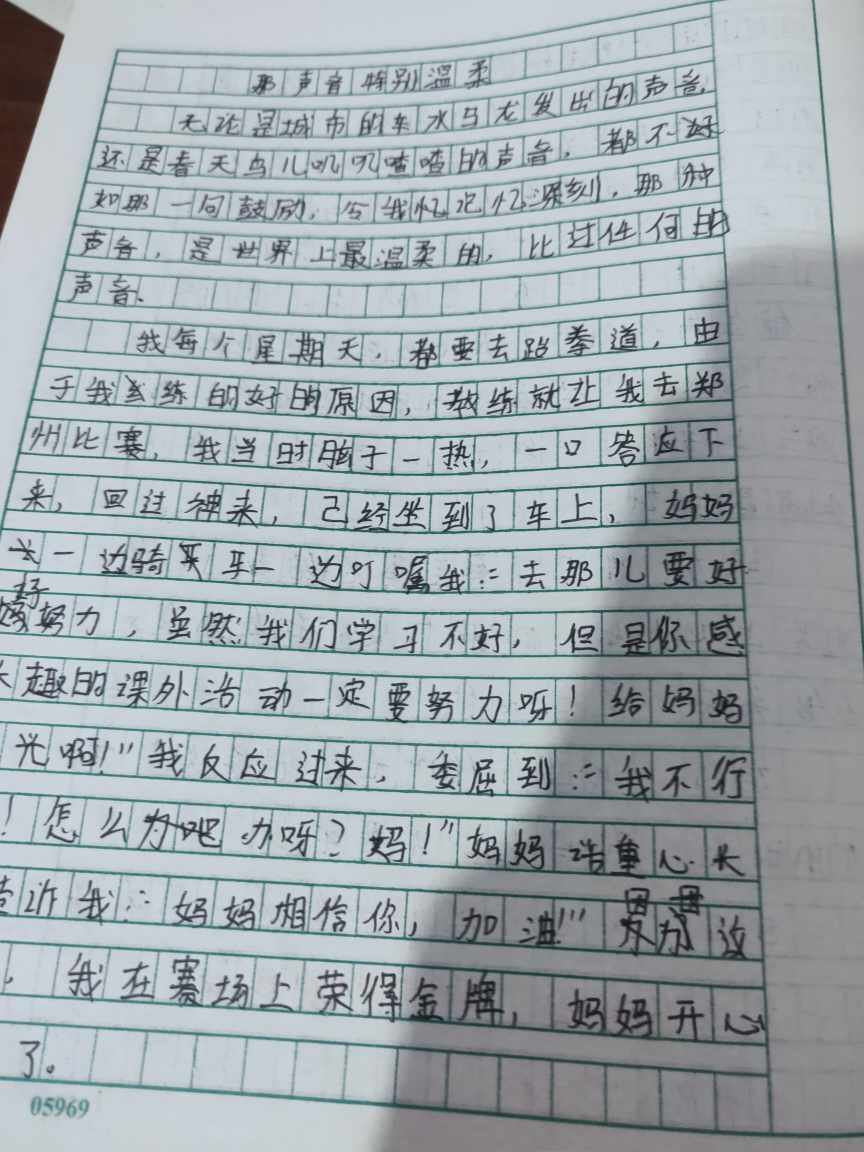 那声音特别温柔
无论是城市的车水马龙发出的声音,
还是春天鸟儿叽叽喳喳的声音,都不好
如那一句鼓励,令我忆记忆深刻,那种
声音,是世界上最温柔的,比过任何的
声音.
我每个星期天,都要去跆拳道,由
于我练的好的原因,教练就让我去郑
州比赛,我当时脑子一热,一口答应下
来,回过神来,己经坐到了车上,妈妈
一边骑车一边叮嘱我:"去那儿要好
好努力,虽然我们学习不好,但是你感
趣的课外活动一定要努力呀!给妈妈
光啊!"我反应过来,委屈到:"我不行
!怎么办呀?妈!"妈妈语重心长
诉我:"妈妈相信你,加油!"因为这
,我在赛场上荣得金牌,妈妈开心
了。
05969